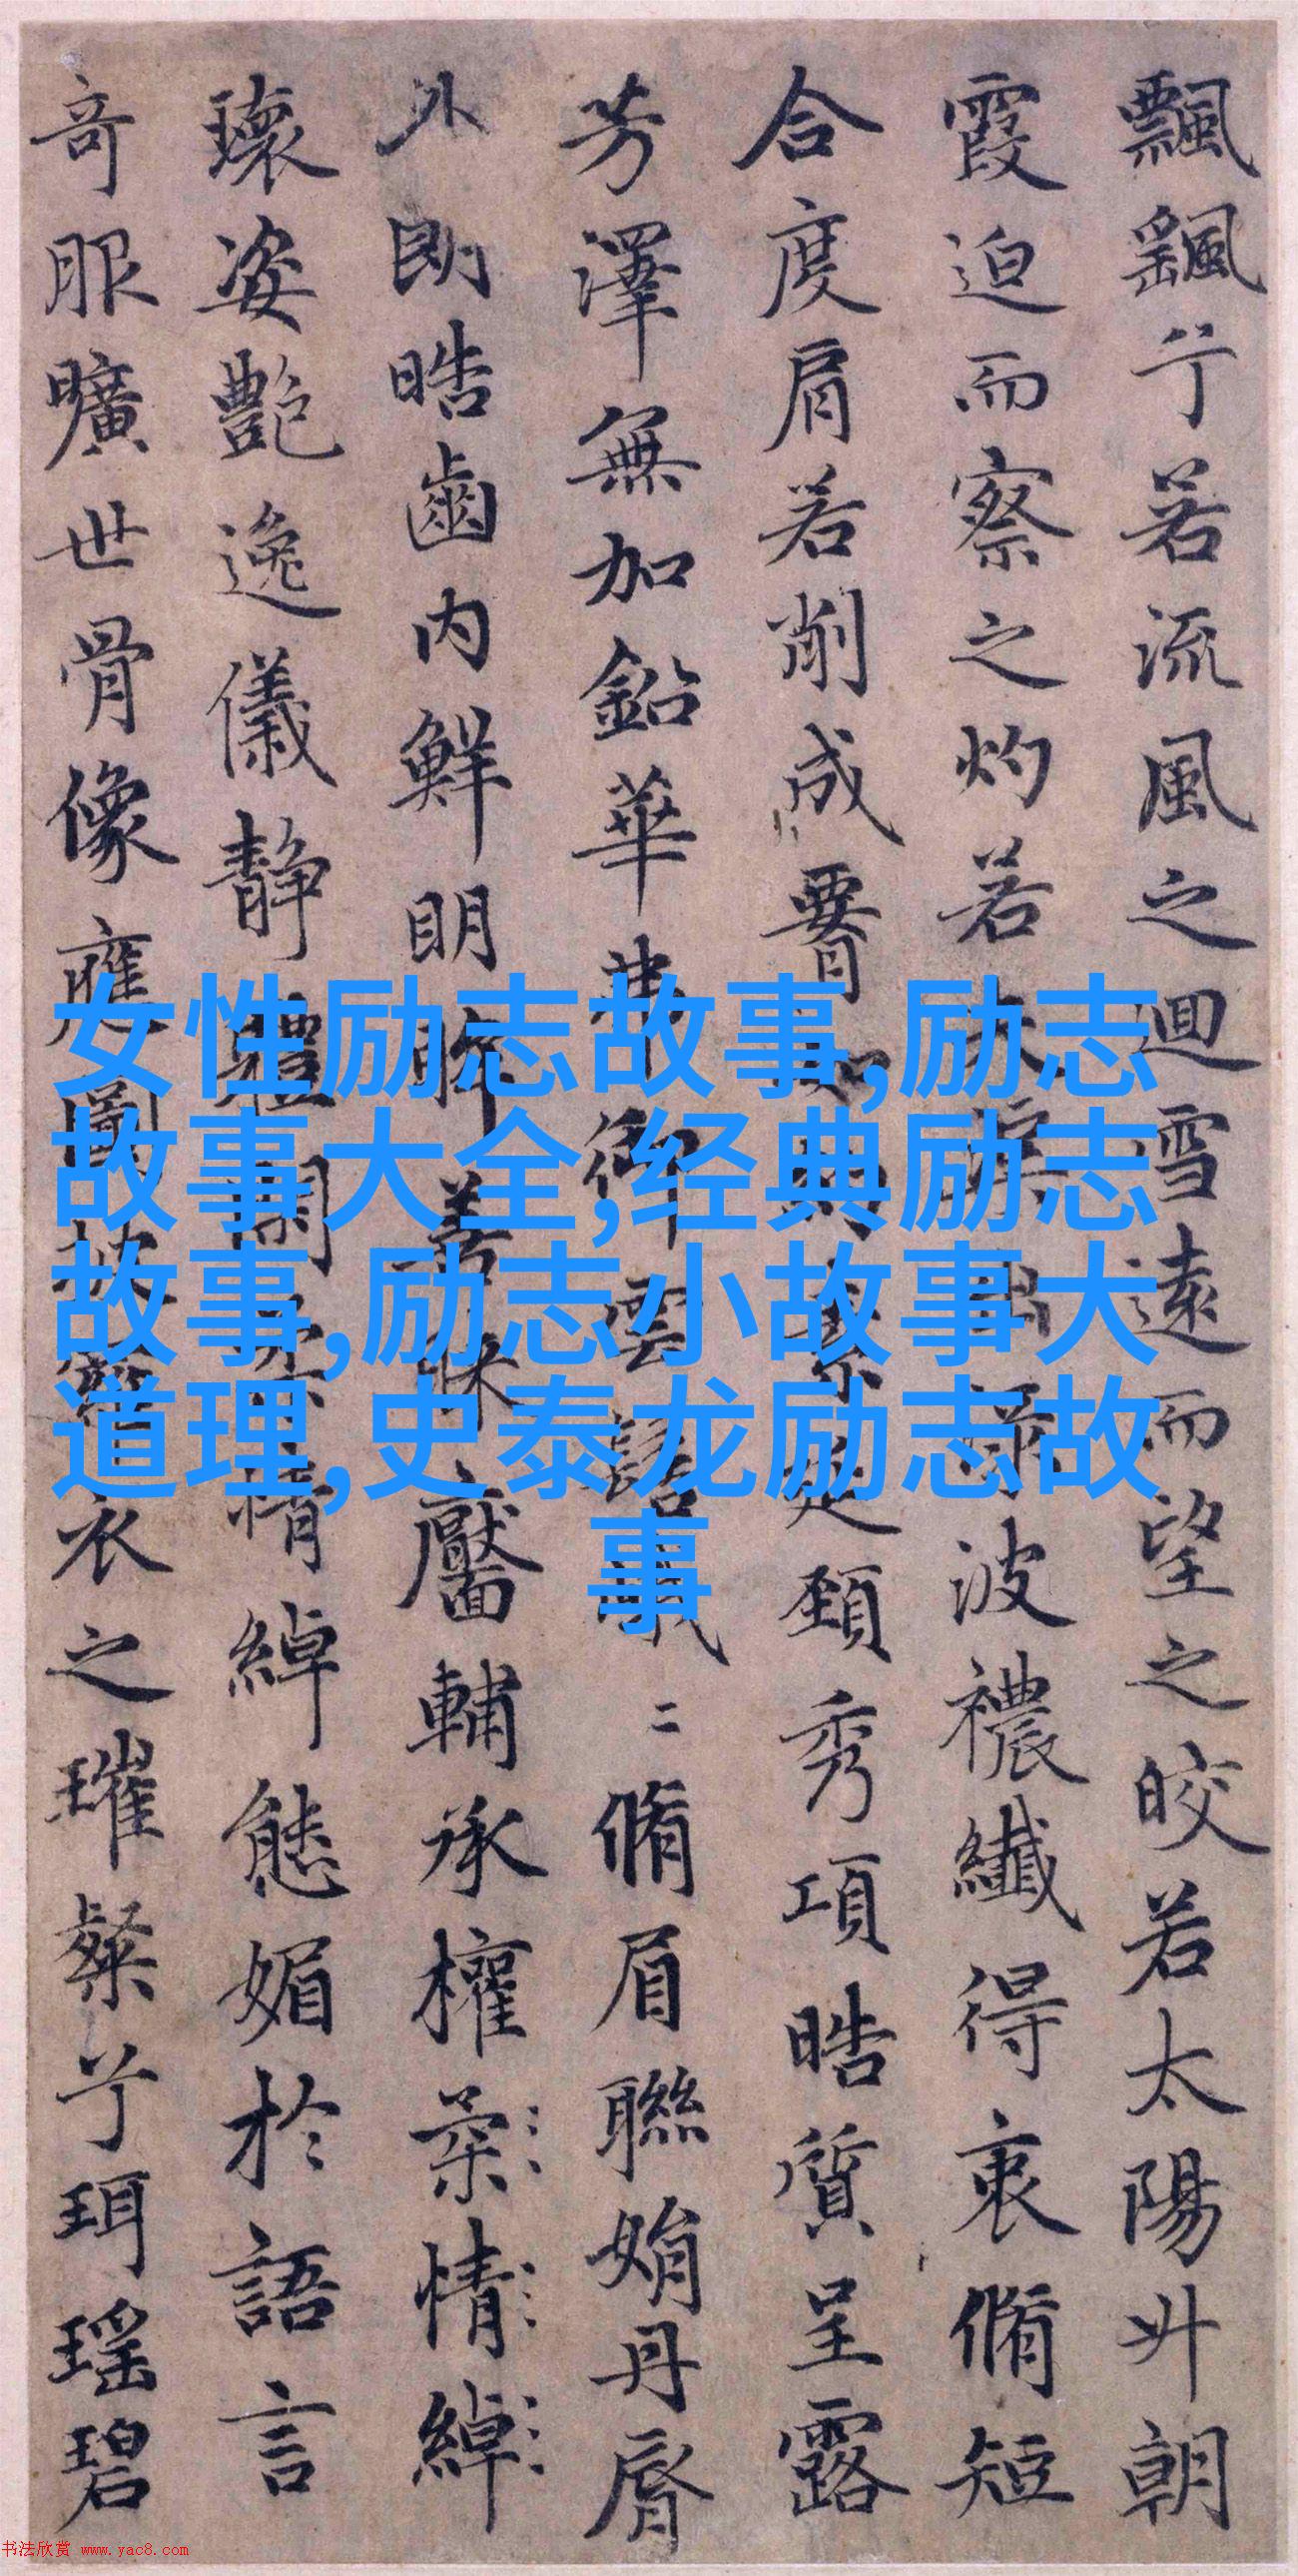 飄颻兮若流風之迴雪遠而望之皎若太陽升朝
霞迫而察之灼若夫出淥波襛纖得衷脩短
合度肩若削成要如素延頸秀項皓質呈露
芳澤無加鉛華弗御雲髻峨二脩眉聯娟丹脣
外朗皓齒內鮮明眸善睞靨輔承權柔情綽
瓌姿艷逸儀靜體閑柔情綽態媚於語言
奇服曠世骨像應圖披羅衣之璀粲兮珥瑤碧
女性励志故事,励志
故事大全,经典励志
故事,励志小故事大
道理,史泰龙励志故
事
书法欣赏 www.yac8.com